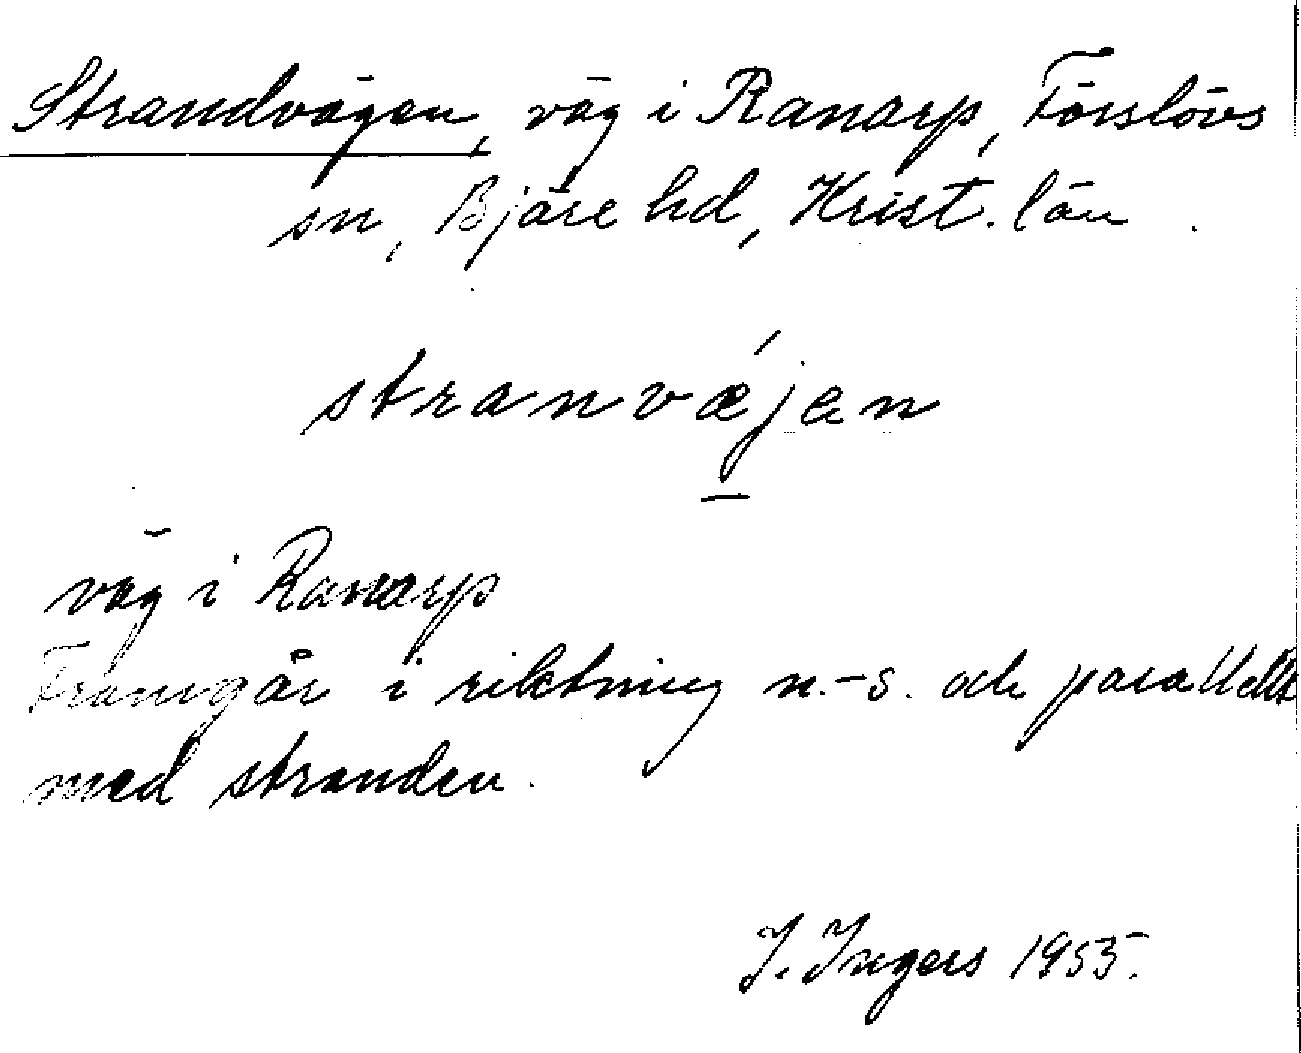 Strandvägen, väg i Ranarp, Förslövs
sn, Bjäre hd, Krist. län.
stranvǽjen
väg i Ranarp
Framgår i riktning n.-s. och parallellt
med stranden.
I. Ingers 1955.